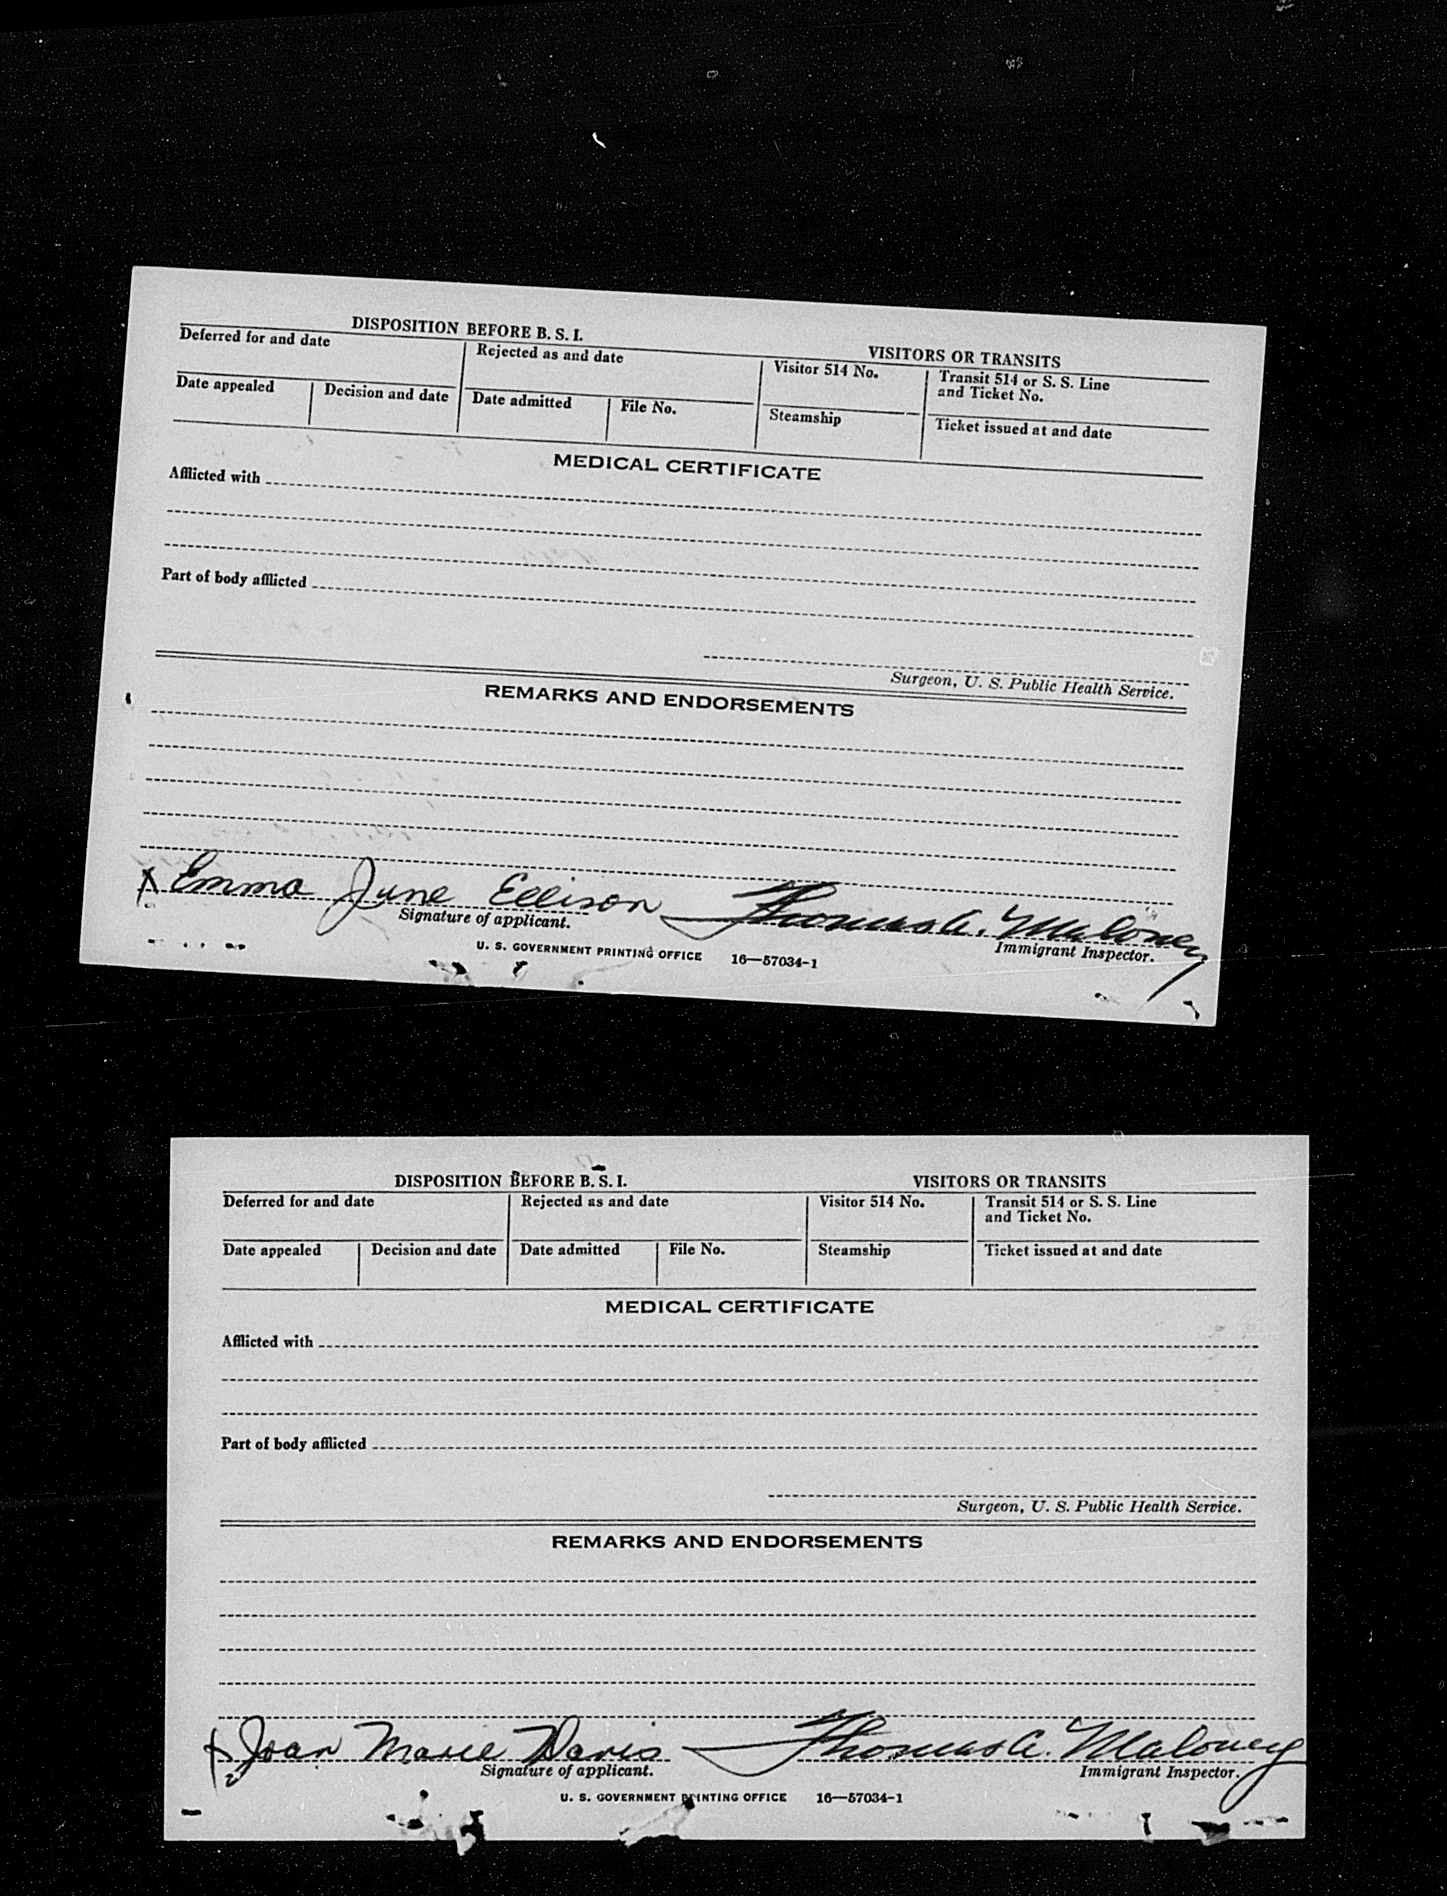 DISPOSITION BEFORE B. S. I.
VISITORS OR TRANSITS
Deferred for and date
Rejected as and date
Visitor 514 No.
Transit 514 or S. S. Line
and Ticket No.
Date appealed
Decision and date
Date admitted
File No.
Steamship
Ticket issued at and date
MEDICAL CERTIFICATE
Afflicted with
Part of body afflicted
Surgeon, U. S. Public Health Service.
REMARKS AND ENDORSEMENTS
X Emma June Ellison Thomas A. Maloney
Signature of applicant. Immigrant Inspector.
U. S. GOVERNMENT PRINTING OFFICE 16—57034-1
DISPOSITION BEFORE B. S. I.
VISITORS OR TRANSITS
Deferred for and date
Rejected as and date
Visitor 514 No.
Transit 514 or S. S. Line
and Ticket No.
Date appealed
Decision and date
Date admitted
File No.
Steamship
Ticket issued at and date
MEDICAL CERTIFICATE
Afflicted with
Part of body afflicted
Surgeon, U. S. Public Health Service.
REMARKS AND ENDORSEMENTS
X Joan Marie Davis Thomas A. Maloney
Signature of applicant. Immigrant Inspector.
U. S. GOVERNMENT PRINTING OFFICE 16—57034-1